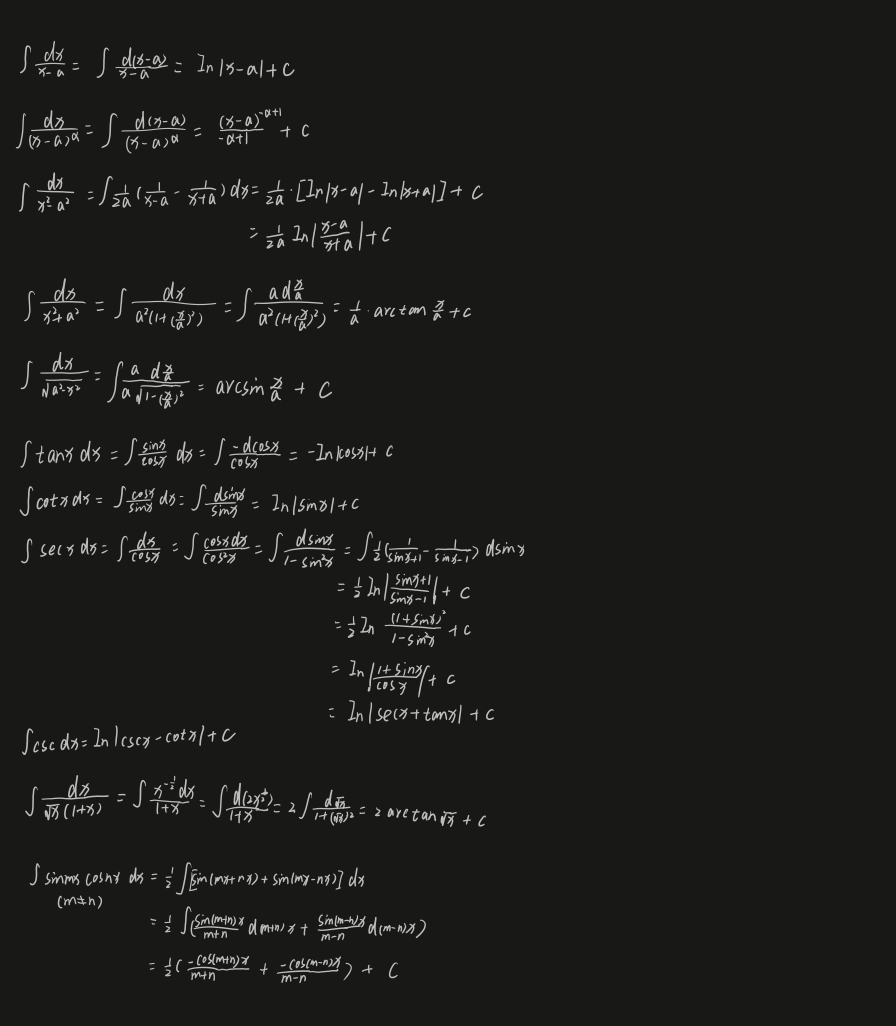 ∫ dx/(x-a) = ∫ d(x-a)/(x-a) = In|x-a| + C
∫ dx/(x-a)^α = ∫ d(x-a)/(x-a)^α = (x-a)^(-α+1)/(-α+1) + C
∫ dx/(x²-a²) = ∫ 1/2a (1/(x-a) - 1/(x+a)) dx = 1/2a · [In|x-a| - In|x+a|] + C
= 1/2a In|(x-a)/(x+a)| + C
∫ dx/(x²+a²) = ∫ dx/(a²(1+(x/a)²)) = ∫ a d(x/a)/(a²(1+(x/a)²)) = 1/a · arctan x/a + C
∫ dx/√(a²-x²) = ∫ a d(x/a)/(a√(1-(x/a)²)) = arcsin x/a + C
∫ tanx dx = ∫ sinx/cosx dx = ∫ -dcosx/cosx = -In|cosx| + C
∫ cotx dx = ∫ cosx/sinx dx = ∫ dsinx/sinx = In|sinx| + C
∫ secx dx = ∫ dx/cosx = ∫ cosxdx/cos²x = ∫ dsinx/(1-sin²x) = ∫ 1/2 (1/(sinx+1) - 1/(sinx-1)) dsinx
= 1/2 In|(sinx+1)/(sinx-1)| + C
= 1/2 In (1+sinx)²/(1-sin²x) + C
= In|(1+sinx)/cosx| + C
= In|secx+tanx| + C
∫csc dx = In|cscx-cotx| + C
∫ dx/(√x(1+x)) = ∫ x^(-1/2)dx/(1+x) = ∫ d(2x^(1/2))/(1+x) = 2∫ d√x/(1+(√x)²) = 2 arctan√x + C
∫ sinmx cosnx dx = 1/2 ∫[sin(mx+nx) + sin(mx-nx)] dx
(m≠n)
= 1/2 ∫(sin(m+n)x/(m+n) d(m+n)x + sin(m-n)x/(m-n) d(m-n)x)
= 1/2 (-cos(m+n)x/(m+n) + -cos(m-n)x/(m-n)) + C